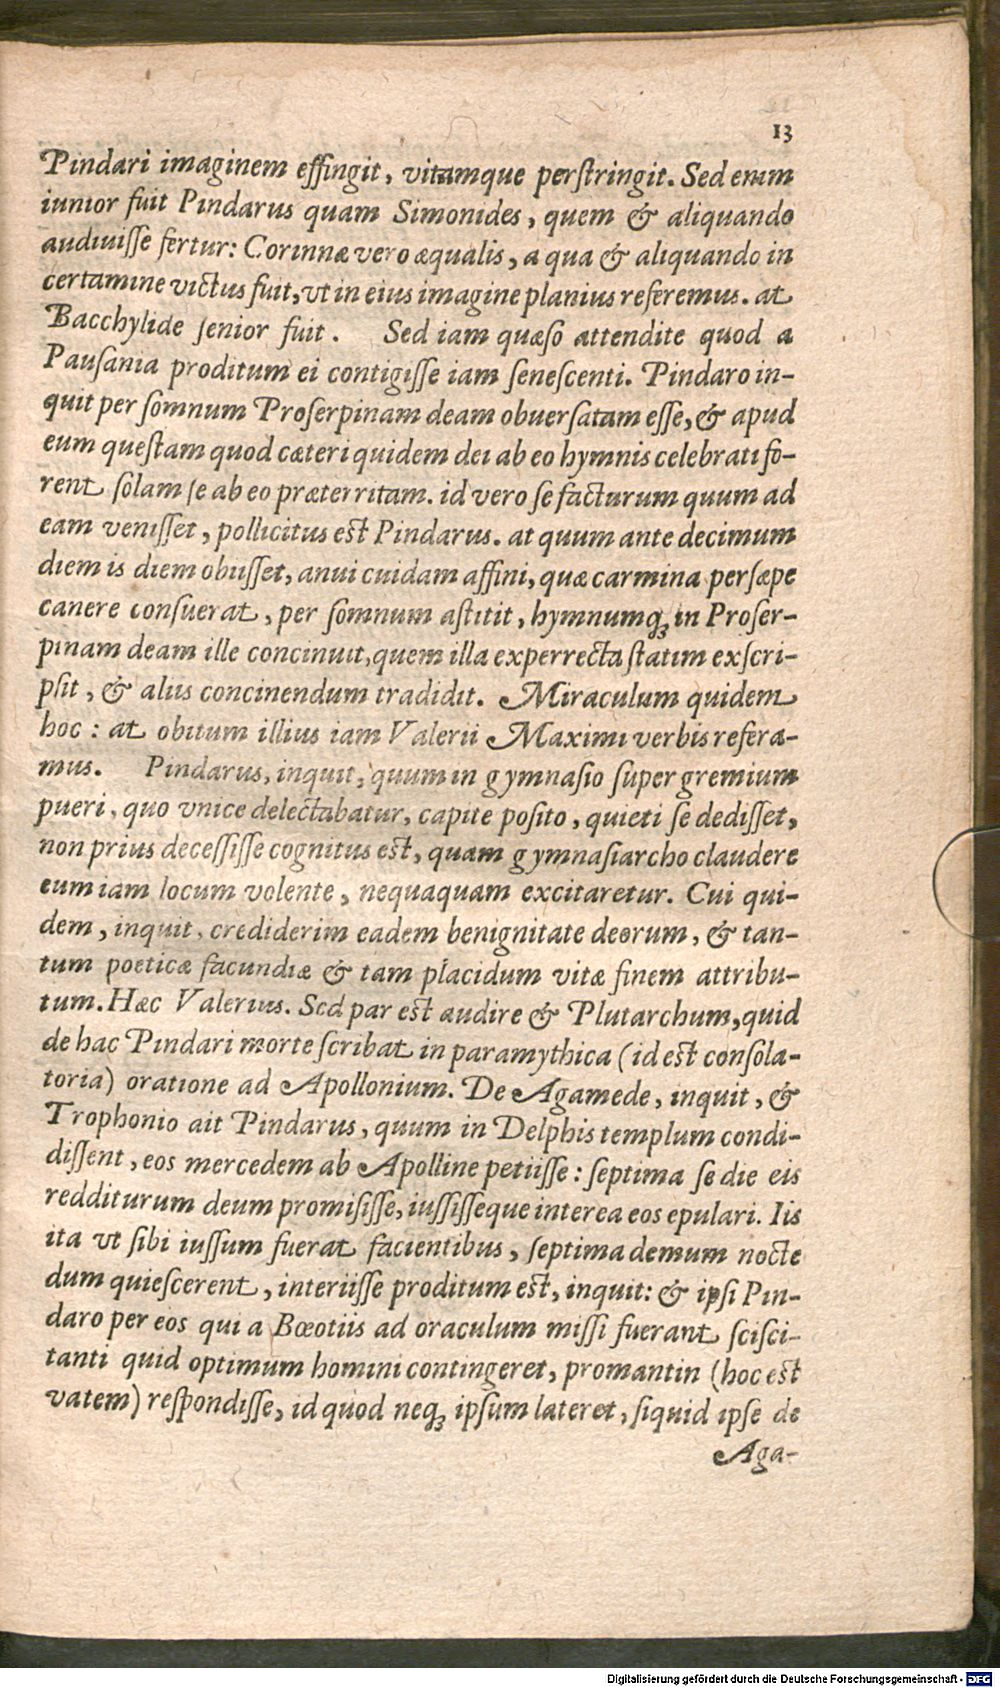 13
Pindari imaginem effingit, vitamque perſtringit. Sed enim
iunior fuit Pindarus quam Simonides, quem & aliquando
audiuiſſe fertur: Corinnæ vero æqualis, a qua & aliquando in
certamine victus fuit, vt in eius imagine planius referemus. at
Bacchylide ſenior fuit. Sed iam quæſo attendite quod a
Pauſania proditum ei contigiſſe iam ſeneſcenti. Pindaro in-
quit per ſomnum Proſerpinam deam obuerſatam eſſe, & apud
eum queſtam quod cæteri quidem dei ab eo hymnis celebrati fo-
rent ſolam ſe ab eo præterritam. id vero ſe facturum quum ad
eam veniſſet, pollicitus eſt Pindarus. at quum ante decimum
diem is diem obiiſſet, anui cuidam affini, quæ carmina perſæpe
canere conſuerat, per ſomnum aſtitit, hymnumq; in Proſer-
pinam deam ille concinuit, quem illa experrecta ſtatim exſcri-
pſit, & aliis concinendum tradidit. Miraculum quidem
hoc: at obitum illius iam Valerii Maximi verbis refera-
mus. Pindarus, inquit, quum in gymnaſio ſuper gremium
pueri, quo vnice delectabatur, capite poſito, quieti ſe dediſſet,
non prius deceſſiſſe cognitus eſt, quam gymnaſiarcho claudere
eum iam locum volente, nequaquam excitaretur. Cui qui-
dem, inquit, crediderim eadem benignitate deorum, & tan-
tum poeticæ facundiæ & tam placidum vitæ finem attribu-
tum. Hæc Valerius. Sed par eſt audire & Plutarchum, quid
de hac Pindari morte ſcribat in paramythica (id eſt conſola-
toria) oratione ad Apollonium. De Agamede, inquit, &
Trophonio ait Pindarus, quum in Delphis templum condi-
diſſent, eos mercedem ab Apolline petiiſſe: ſeptima ſe die eis
redditurum deum promiſiſſe, iuſſiſſeque interea eos epulari. Iis
ita vt ſibi iuſſum fuerat facientibus, ſeptima demum nocte
dum quieſcerent, interiiſſe proditum eſt, inquit: & ipſi Pin-
daro per eos qui a Bœotiis ad oraculum miſſi fuerant ſciſci-
tanti quid optimum homini contingeret, promantin (hoc eſt
vatem) reſpondiſſe, id quod neq; ipſum lateret, ſiquid ipſe de
Aga-
Digitalisierung gefördert durch die Deutsche Forschungsgemeinschaft - DFG